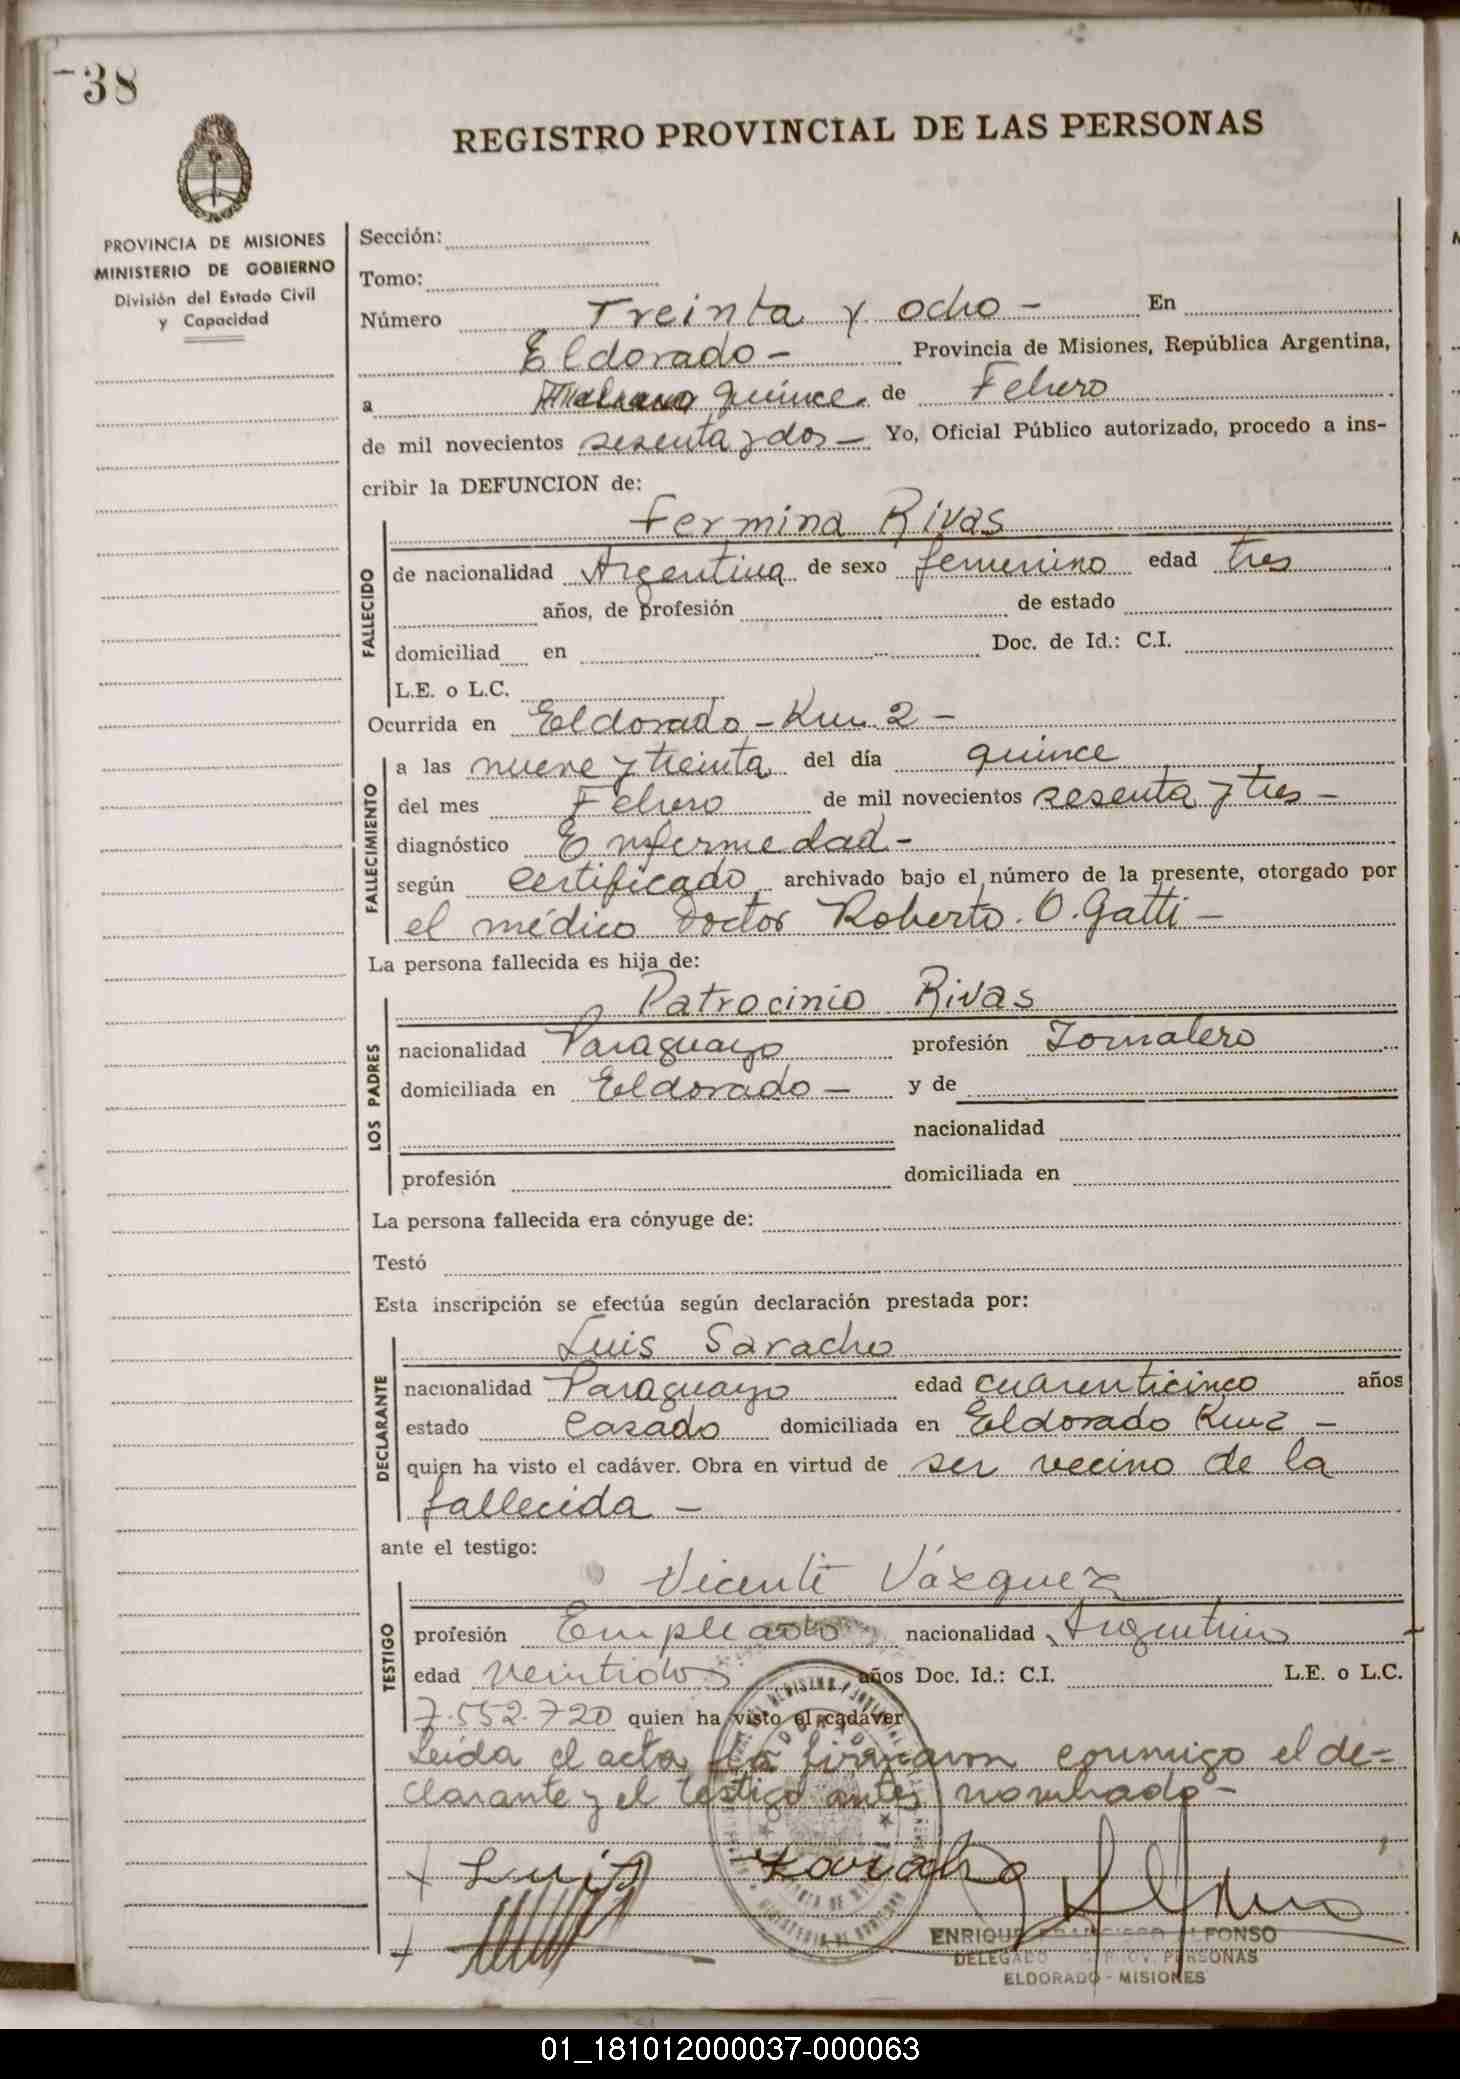 38
REGISTRO PROVINCIAL DE LAS PERSONAS
PROVINCIA DE MISIONES
MINISTERIO DE GOBIERNO
División del Estado Civil
y Capacidad
Sección:
Tomo:
Número Treinta y ocho - En
Eldorado - Provincia de Misiones, República Argentina,
a quince de Febrero
de mil novecientos sesenta y dos - Yo, Oficial Público autorizado, procedo a ins-
cribir la DEFUNCION de:
Fermina Rivas
FALLECIDO
de nacionalidad Argentina de sexo femenino edad tres
años, de profesión de estado
domiciliad en Doc. de Id.: C.I.
L.E. o L.C.
Ocurrida en Eldorado - Km 2 -
FALLECIMIENTO
a las nueve y treinta del día quince
del mes Febrero de mil novecientos sesenta y tres -
diagnóstico Enfermedad -
según certificado archivado bajo el número de la presente, otorgado por
el médico Doctor Roberto. O. Gatti -
La persona fallecida es hija de:
Patrocinio Rivas
LOS PADRES
nacionalidad Paraguayo profesión Jornalero
domiciliada en Eldorado - y de
nacionalidad
profesión domiciliada en
La persona fallecida era cónyuge de:
Testó
Esta inscripción se efectúa según declaración prestada por:
Luis Saracho
DECLARANTE
nacionalidad Paraguayo edad cuarenticinco años
estado Casado domiciliada en Eldorado Km 2 -
quien ha visto el cadáver. Obra en virtud de ser vecino de la
fallecida -
ante el testigo:
Vicente Vázquez
TESTIGO
profesión Empleado nacionalidad Argentino
edad veintidos años Doc. Id.: C.I. L.E. o L.C.
7.552.720 quien ha visto el cadáver
Leída el acta, la firmaron conmigo el de-
clarante y el testigo antes nombrado -
Luis Saracho
ENRIQUE FRANCISCO ALFONSO
DELEGADO PROV. PERSONAS
ELDORADO - MISIONES
01_181012000037-000063